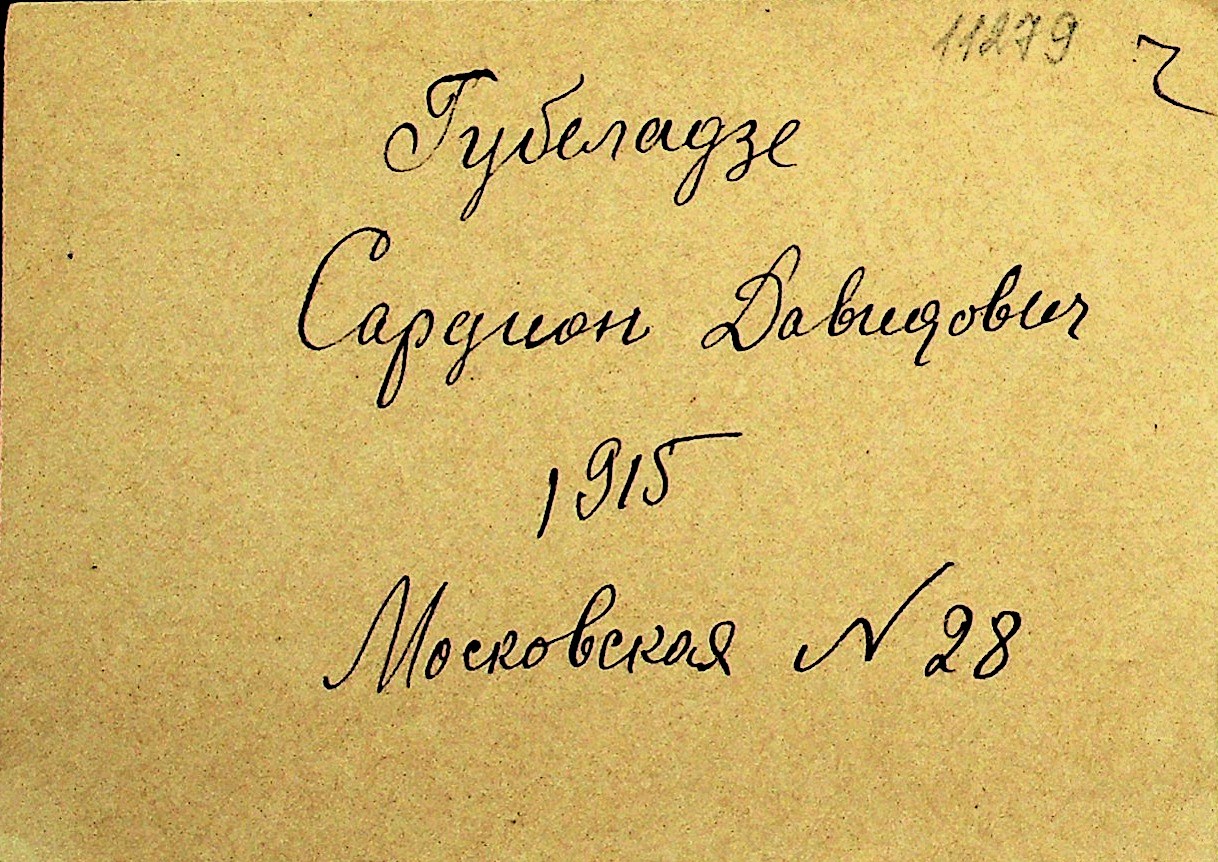 11279
Губеладзе
Сардион Давидович
1915
Московская N 28